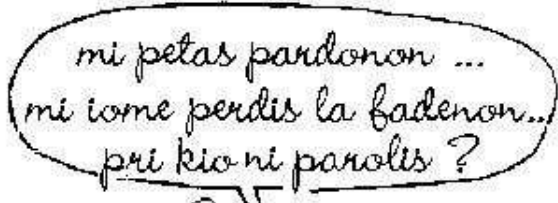 mi petas pardonon ...
mi iome perdis la fadenon...
pri kio ni parolis ?